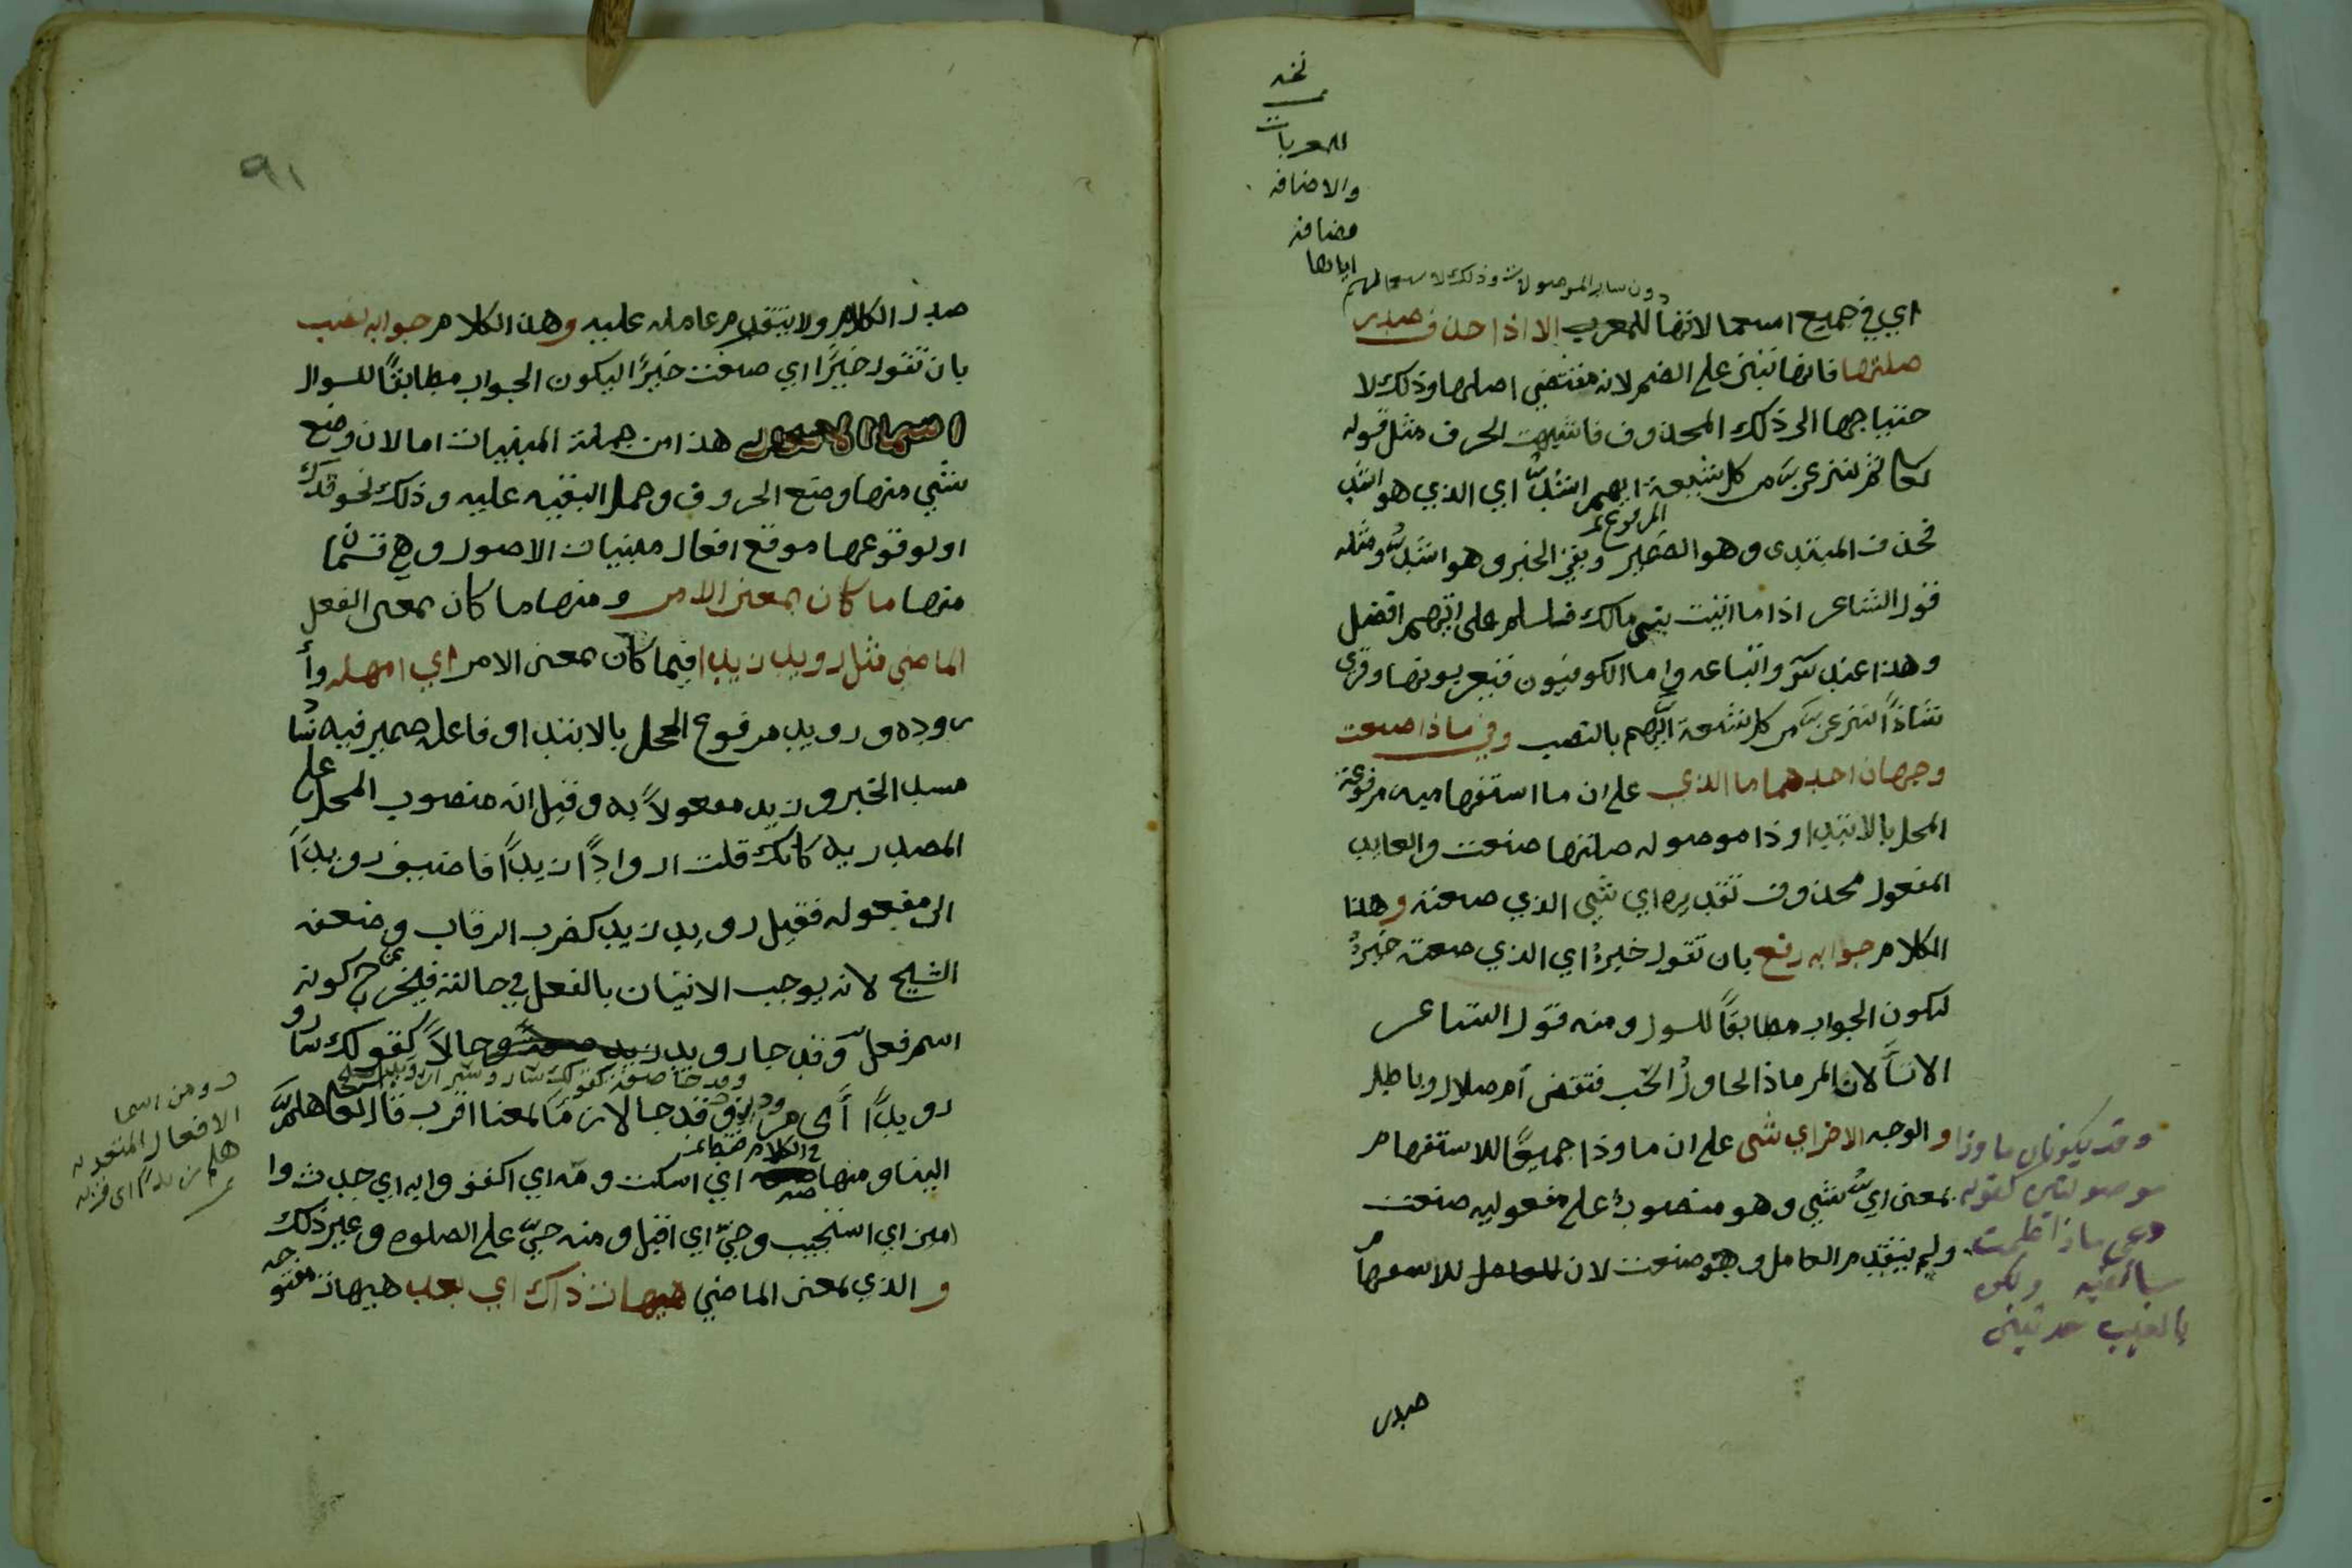 نخه
المعربات
والاضافه
مضافه
اياها
دون ساير الموصولات وذلك لاستعمالهم
اي في جميع استعمالاتها للمعرب الا اذا حذف صدر
صلتها فانها تبنى على الضم لانه مقتضي اصلها وذلك لا
حتياجها الى ذلك المحذوف فاشبهت الحرف مثل قوله
تعالى ثم لننزعن من كل شيعة ايهم اشدُّ اي الذي هو اشد
فحذف المبتدى وهو الضمير المرفوع وبقي الخبر وهو اشدُّ ومثله
قول الشاعر اذا ما اتيت بني مالك فسلم على ايهم افضل
وهذا عند س واتباعه واما الكوفيون فيعربونها وقرى
شاذاً لننزعن من كل شيعة ايَّهم بالنصب وفي ماذا صنعت
وجهان احدهما ما الذي على ان ما استفهاميه مرفوعة
المحل بالابتدا وذا موصوله صلتها صنعت والعايد
المفعول محذوف تقديره اي شي الذي صنعته وهذا
الكلام جوابه رفع بان تقول خيرٌ اي الذي صنعته خيرٌ
ليكون الجواب مطابقاً للسول ومنه قول الشاعر
الا تسألان المر ماذا يحاول انحب فيقضى أم ضلال وباطل
والوجه الاخر اي شي على ان ما وذا جميعًا للاستفهام
بمعنى ايُّ شي وهو منصوب على مفعوليه صنعت
ولم يتقدم العامل وهو صنعت لان للاستفهام
وقد يكونان ما وذا
موصولتين كقوله
دعي ماذا علمت
سأتقيه ولكن
بالغيب حدثيني
صدر
٩١
صدر الكلام ولا يتقدم عامله عليه وهذا الكلام جوابه نصب
بان تقول خيرًا اي صنعت خيرًا ليكون الجواب مطابقًا للسوال
اسما الافعال هذا من جملة المبنيات اما لان وضع
شي منها وضع الحروف وحمل البقيه عليه وذلك نحو قدك
او لوقوعها موقع افعال مبنيات الاصول وهي قسمان
منها ما كان بمعنى الامر ومنها ما كان بمعنى الفعل
الماضي مثل رويد زيدا فيما كان بمعنى الامر اي امهله وأ
روده ورويد مرفوع المحل بالابتدا وفاعله ضمير فيه سَادٌ
مسد الخبر وزيد مفعولاً به وقيل انه منصوب المحل على
المصدريه كانك قلت ارواداً زيداً فاضيف رويداً
الى مفعوله فقيل رويد زيد كضرب الرقاب وضعفه
الشيخ لانه يوجب الاتيان بالفعل في حالته فيخرج عن كونه
اسم فعل وقد جا رويد حالاً كقولك ساروا
وقد جا صفة كقولك ساروا سيرا رويدا
رويداً أي مرودين وقد جا لازمًا كمعنا اقرب قال تعالى هلمَّ
الينا ومنها صه اي اسكت ومه اي اكفف وايه اي حدث وا
امين اي استجيب وحيّ اي اقبل ومنه حيّ على الصلوه وغير ذلك
والذي بمعنى الماضي هيهات ذاك اي بعد هيهات مفتوحه
ومن اسما
الافعال المتعديه
هلم زيدا اي قربه